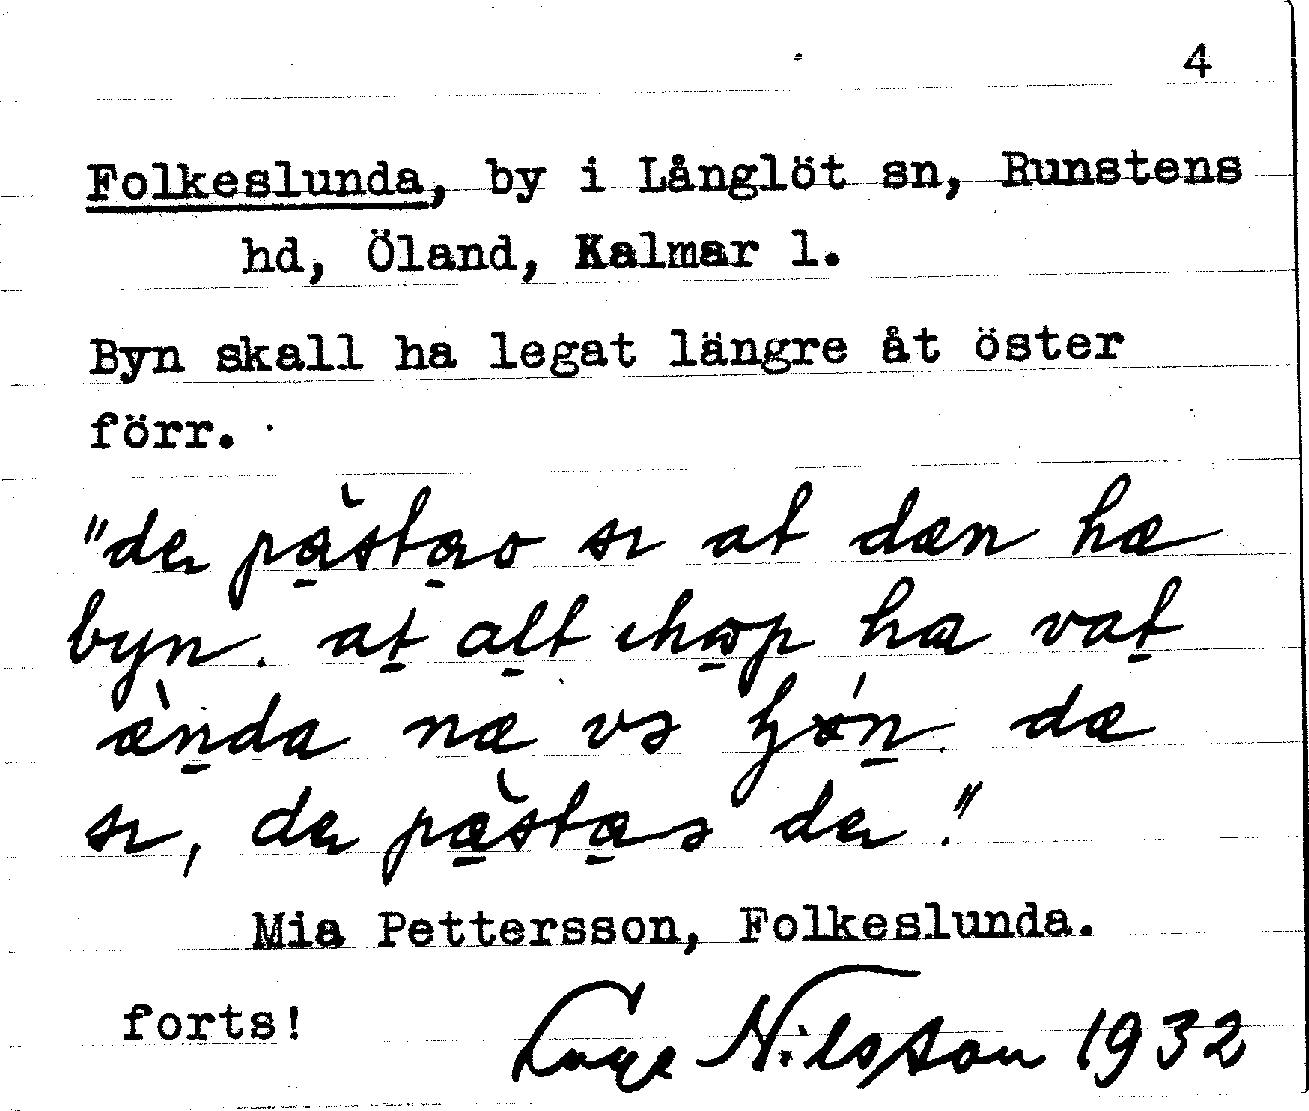 4
Folkeslunda, by i Långlöt sn, Runstens
hd, Öland, Kalmar l.
Byn skall ha legat längre åt öster
förr.
"de at dæn hæ
byn. at alt ihop ha vat
ænda næ dæ
de de."
Mia Pettersson, Folkeslunda.
forts! Nilsson 1932